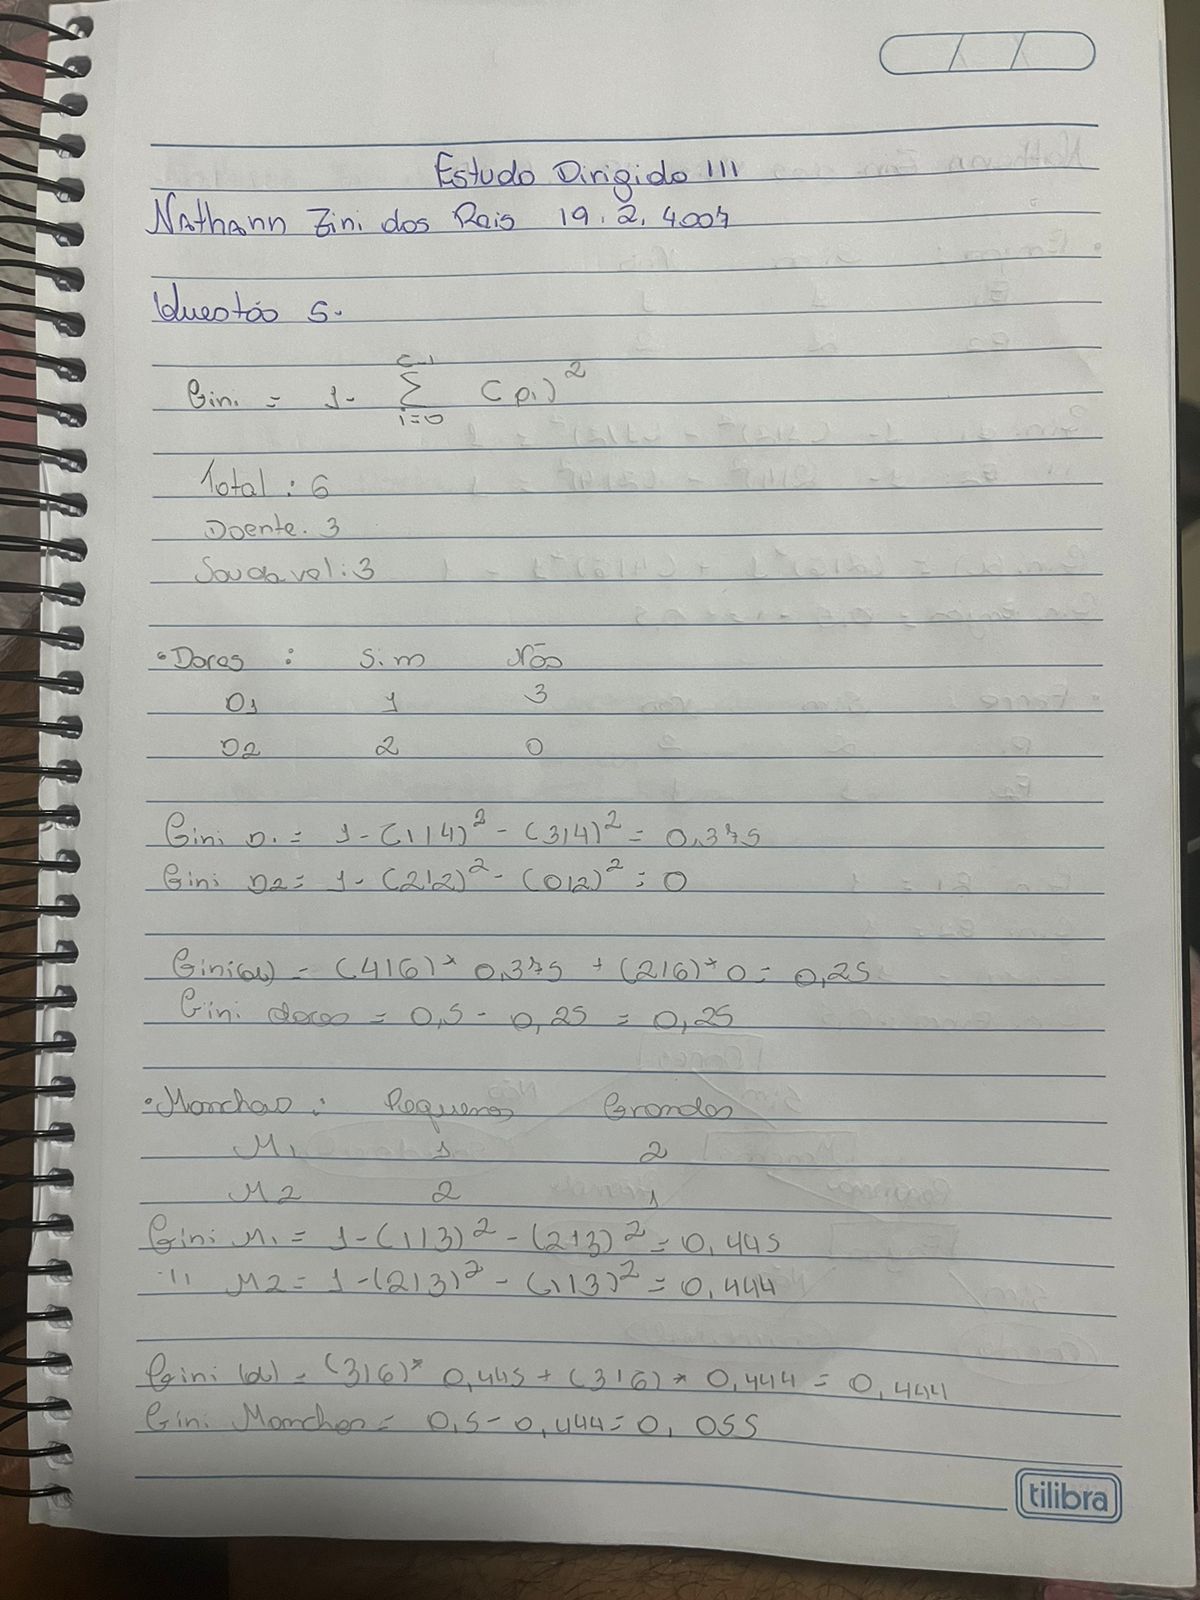 Estudo Dirigido III
Nathann Zini dos Reis 19.2.4007
Questão 5.
Gini = 1 - Σ (pi)²
c-1
i=0
Total: 6
Doente. 3
Saudavel: 3
• Dores : Sim Não
D1 1 3
D2 2 0
Gini D1 = 1 - (1/4)² - (3/4)² = 0,375
Gini D2 = 1 - (2/2)² - (0/2)² = 0
Gini(d) = (4/6)* 0,375 + (2/6)* 0 = 0,25
Gini dores = 0,5 - 0,25 = 0,25
• Manchas : Pequenas Grandes
M1 1 2
M2 2 1
Gini M1 = 1 - (1/3)² - (2/3)² = 0,445
" M2 = 1 - (2/3)² - (1/3)² = 0,444
Gini (d) = (3/6)* 0,445 + (3/6) * 0,444 = 0,444
Gini Manchas = 0,5 - 0,444 = 0,055
tilibra